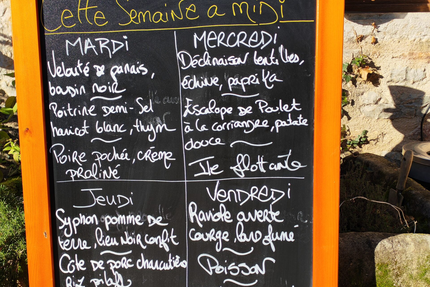 Cette Semaine a midi
MARDI
Velouté de panais,
boudin noir
Poitrine demi-sel
haricot blanc, thym
Poire pochée, crème
praliné
MERCREDI
Déclinaison lentilles,
échine, paprika
Escalope de Poulet
à la corriandre, patate
douce
Ile flottante
JEUDI
Syphon pomme de
terre, lieu noir confit
Côte de porc charcutière
riz pilaf
VENDREDI
Raviole ouverte
courge, lard fumé
Poisson